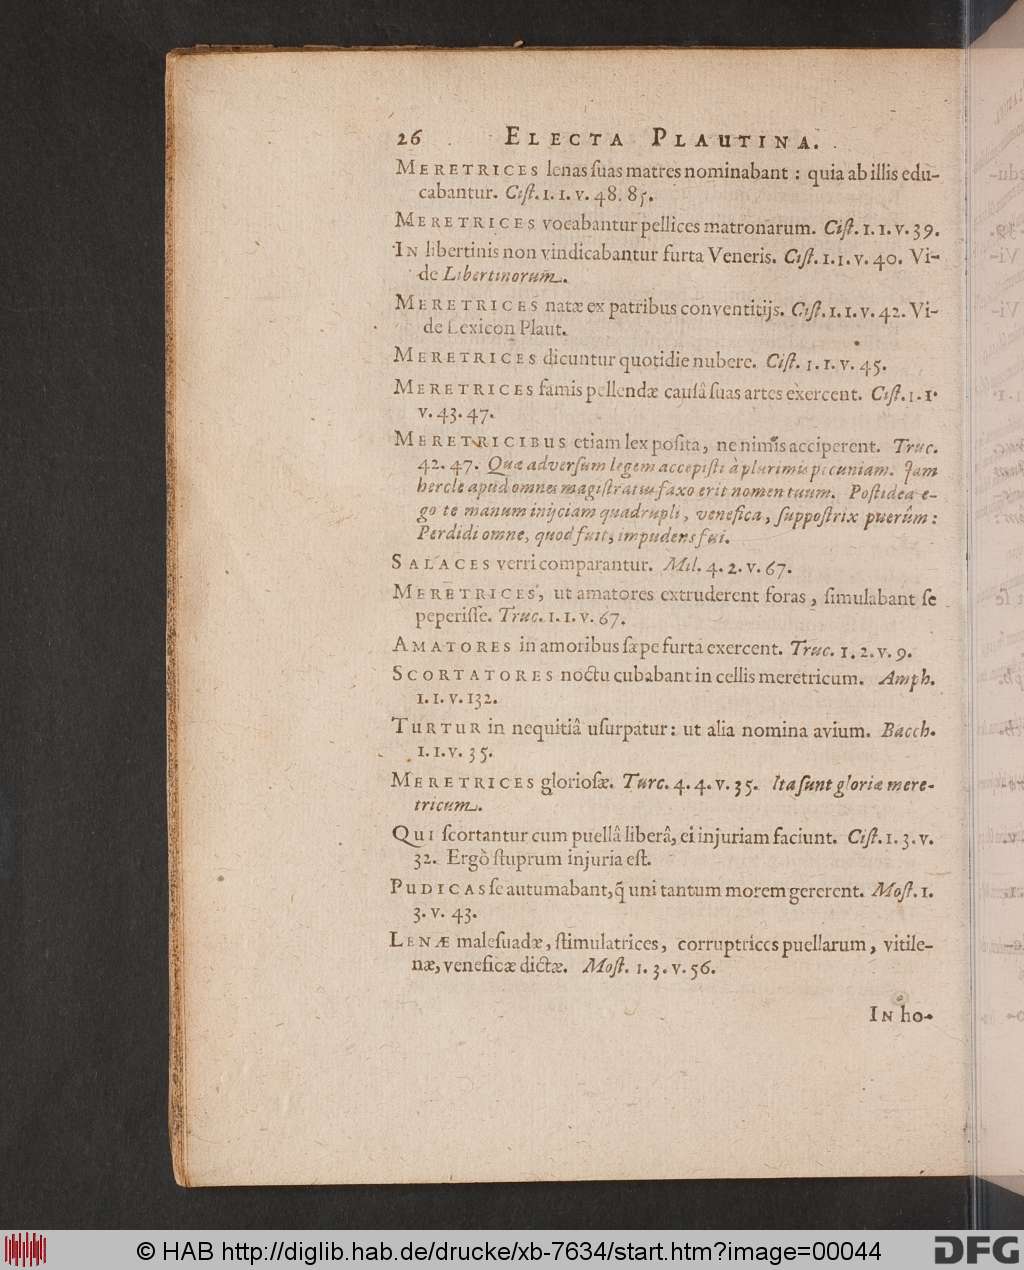 26 ELECTA PLAUTINA.
MERETRICES lenas ſuas matres nominabant : quia ab illis edu-
cabantur. Ciſt. 1. 1. v. 48. 85.
MERETRICES vocabantur pellices matronarum. Ciſt. 1. 1. v. 39.
IN libertinis non vindicabantur furta Veneris. Ciſt. 1. 1. v. 40. Vi-
de Libertinorum.
MERETRICES natæ ex patribus conventitijs. Ciſt. 1. 1. v. 42. Vi-
de Lexicon Plaut.
MERETRICES dicuntur quotidie nubere. Ciſt. 1. 1. v. 45.
MERETRICES famis pellendæ cauſâ ſuas artes exercent. Ciſt. 1. 1.
v. 43. 47.
MERETRICIBUS etiam lex poſita, ne nimis acciperent. Truc.
42. 47. Quæ adverſum legem accepiſti à plurimis pecuniam. Jam
hercle apud omnes magiſtratus faxo erit nomen tuum. Poſtidea e-
go te manum inijciam quadrupli, venefica, ſuppoſtrix puerûm :
Perdidi omne, quod fuit, impudens fui.
SALACES verri comparantur. Mil. 4. 2. v. 67.
MERETRICES, ut amatores extruderent foras, ſimulabant ſe
peperiſſe. Truc. 1. 1. v. 67.
AMATORES in amoribus ſæpe furta exercent. Truc. 1. 2. v. 9.
SCORTATORES noctu cubabant in cellis meretricum. Amph.
1. 1. v. 132.
TURTUR in nequitiâ uſurpatur: ut alia nomina avium. Bacch.
1. 1. v. 35.
MERETRICES glorioſæ. Turc. 4. 4. v. 35. Ita ſunt gloriæ mere-
tricum.
QUI ſcortantur cum puellâ liberâ, ei injuriam faciunt. Ciſt. 1. 3. v.
32. Ergò ſtuprum injuria eſt.
PUDICAS ſe autumabant, q̃ uni tantum morem gererent. Moſt. 1.
3. v. 43.
LENÆ maleſuadæ, ſtimulatrices, corruptrices puellarum, vitile-
næ, veneficæ dictæ. Moſt. 1. 3. v. 56.
IN ho-
© HAB http://diglib.hab.de/drucke/xb-7634/start.htm?image=00044
DFG